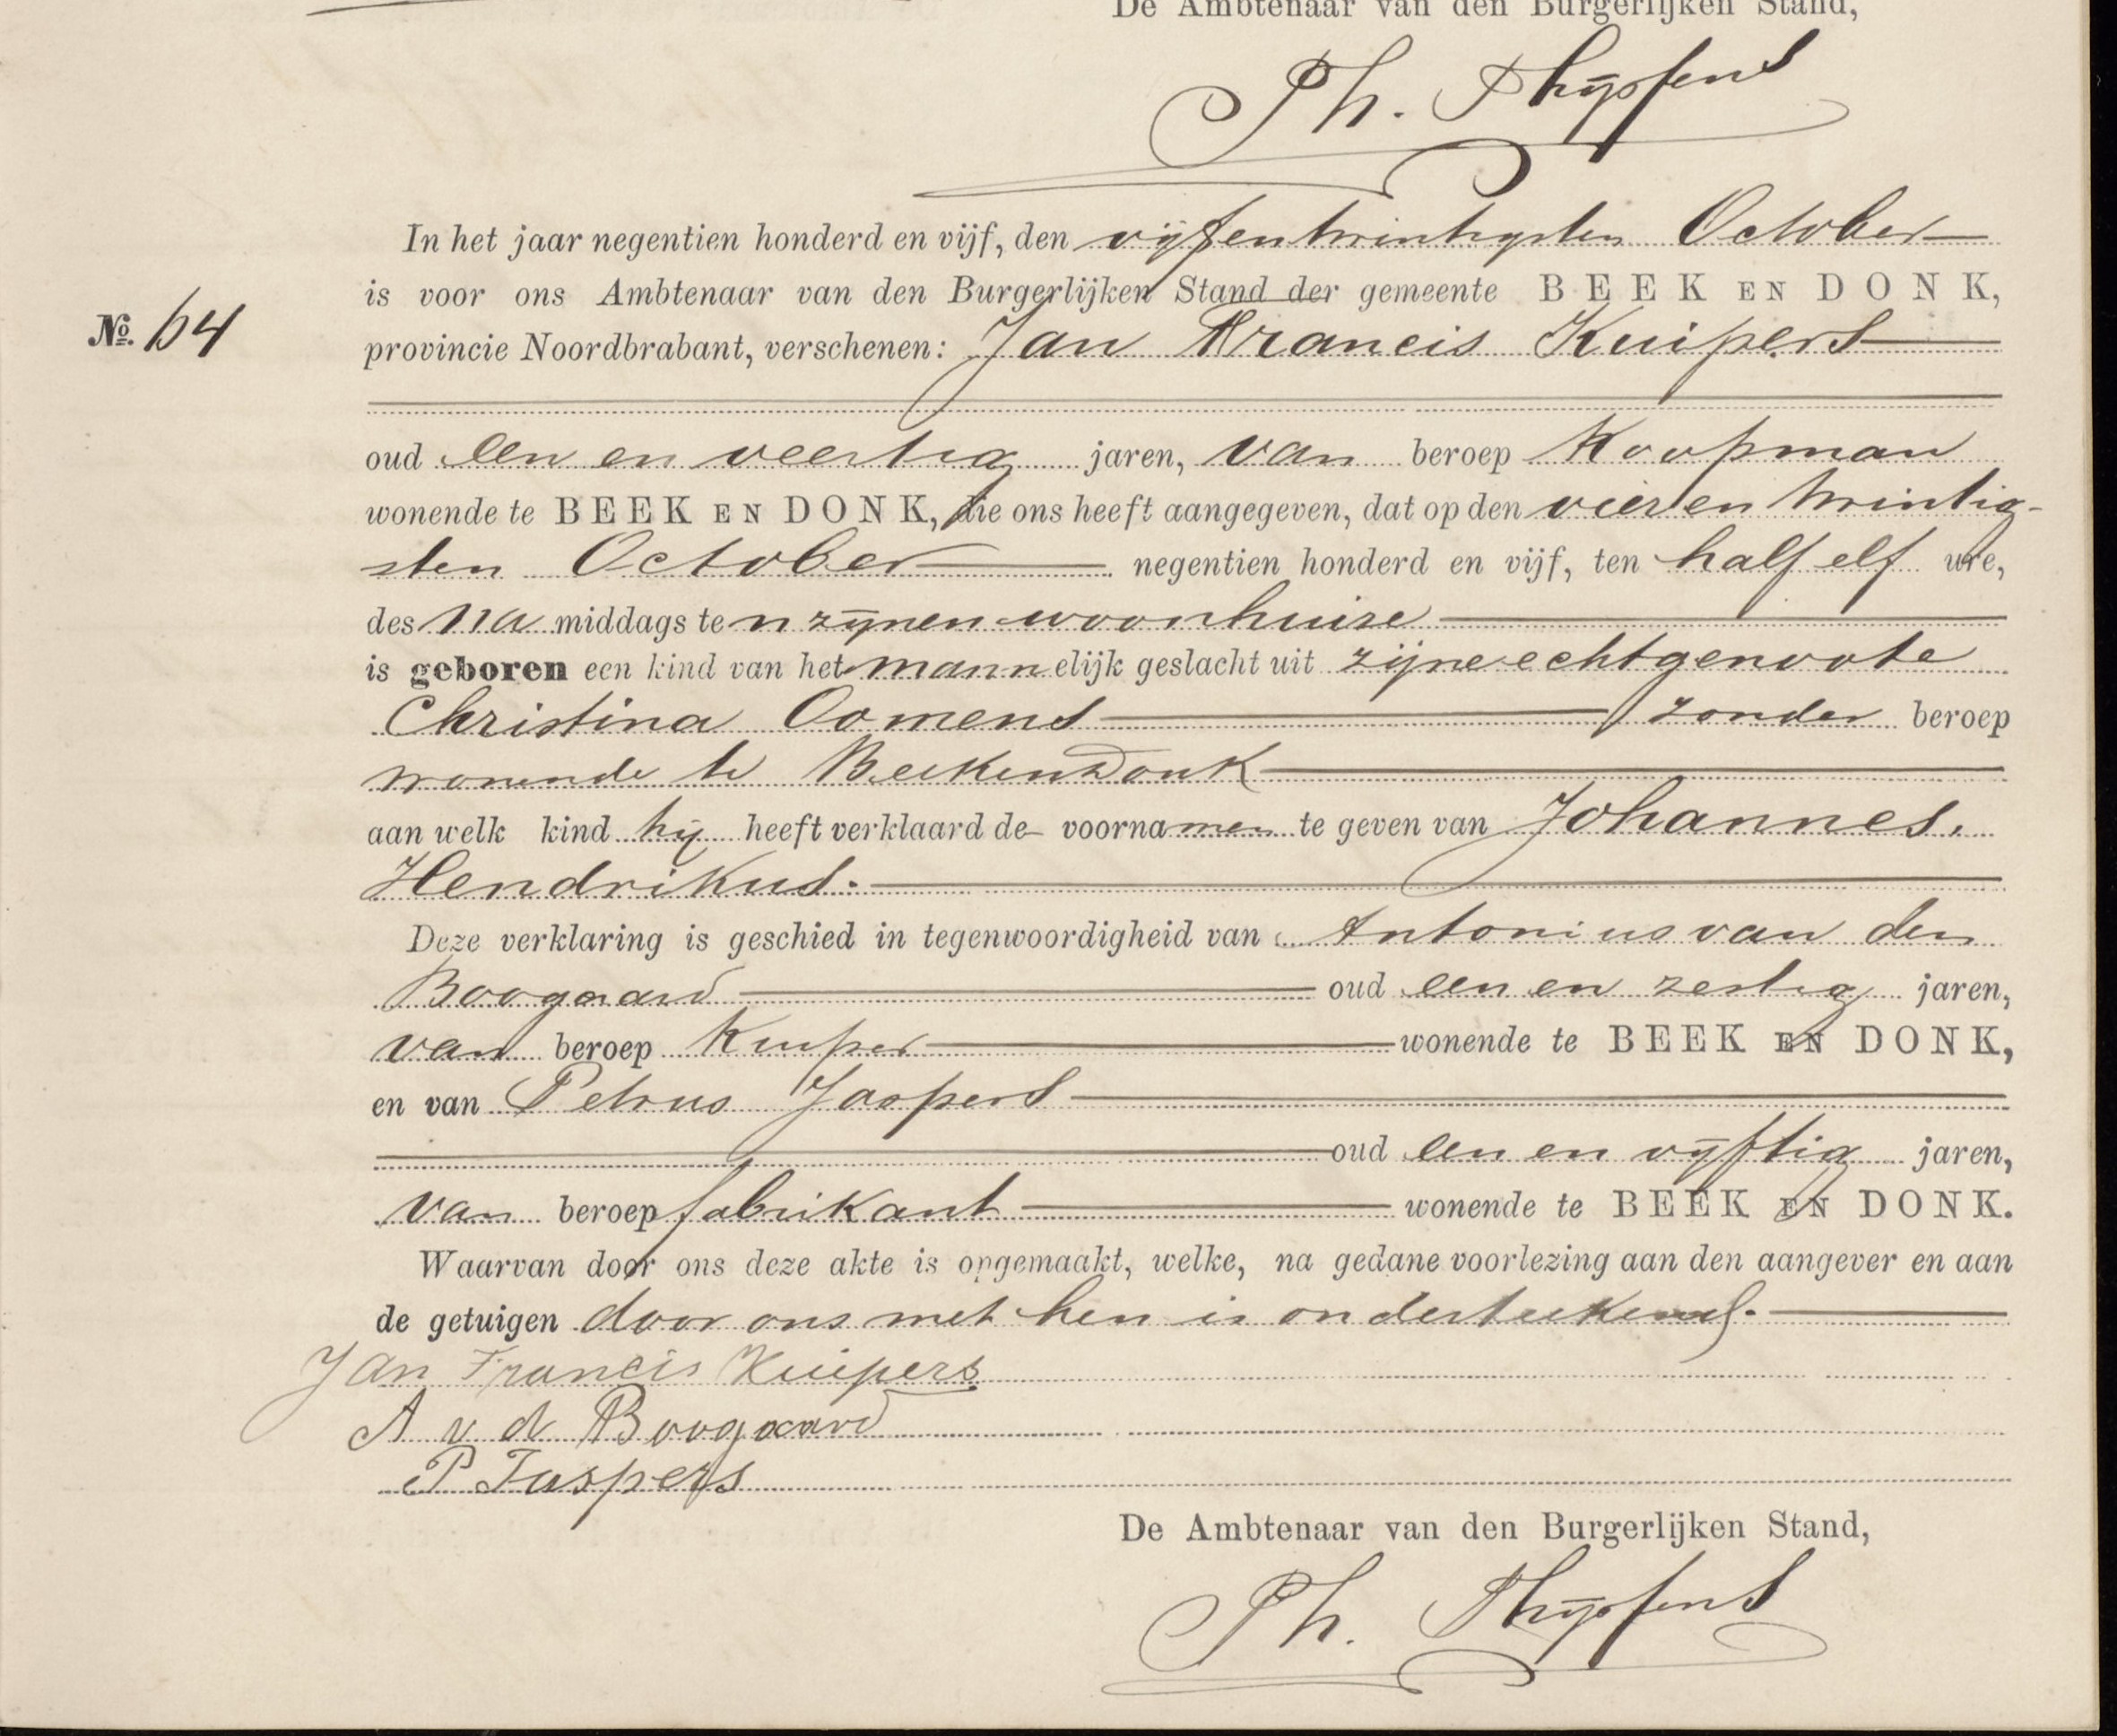 De Ambtenaar van den Burgerlijken Stand,
Ph. Thijssens
In het jaar negentien honderd en vijf, den vijfentwintigsten October
is voor ons Ambtenaar van den Burgerlijken Stand der gemeente BEEK EN DONK,
No. 64
provincie Noordbrabant, verschenen: Jan Francis Kuipers
oud een en veertig jaren, van beroep Koopman
wonende te BEEK EN DONK, die ons heeft aangegeven, dat op den vier en twintig-
sten October negentien honderd en vijf, ten half elf ure,
des na middags te n zijnen woonhuize
is geboren een kind van het mannelijk geslacht uit zijne echtgenoote
Christina Oomens zonder beroep
wonende te Beekendonk
aan welk kind hij heeft verklaard de voornamen te geven van Johannes.
Hendrikus.
Deze verklaring is geschied in tegenwoordigheid van Antonius van den
Boogaard oud een en zestig jaren,
van beroep Kuiper wonende te BEEK EN DONK,
en van Petrus Jaspers
oud een en vijftig jaren,
van beroep fabrikant wonende te BEEK EN DONK.
Waarvan door ons deze akte is opgemaakt, welke, na gedane voorlezing aan den aangever en aan
de getuigen door ons met hen is onderteekend.
Jan Francis Kuipers
A v d Boogaard
P Jaspers
De Ambtenaar van den Burgerlijken Stand,
Ph. Thijssens